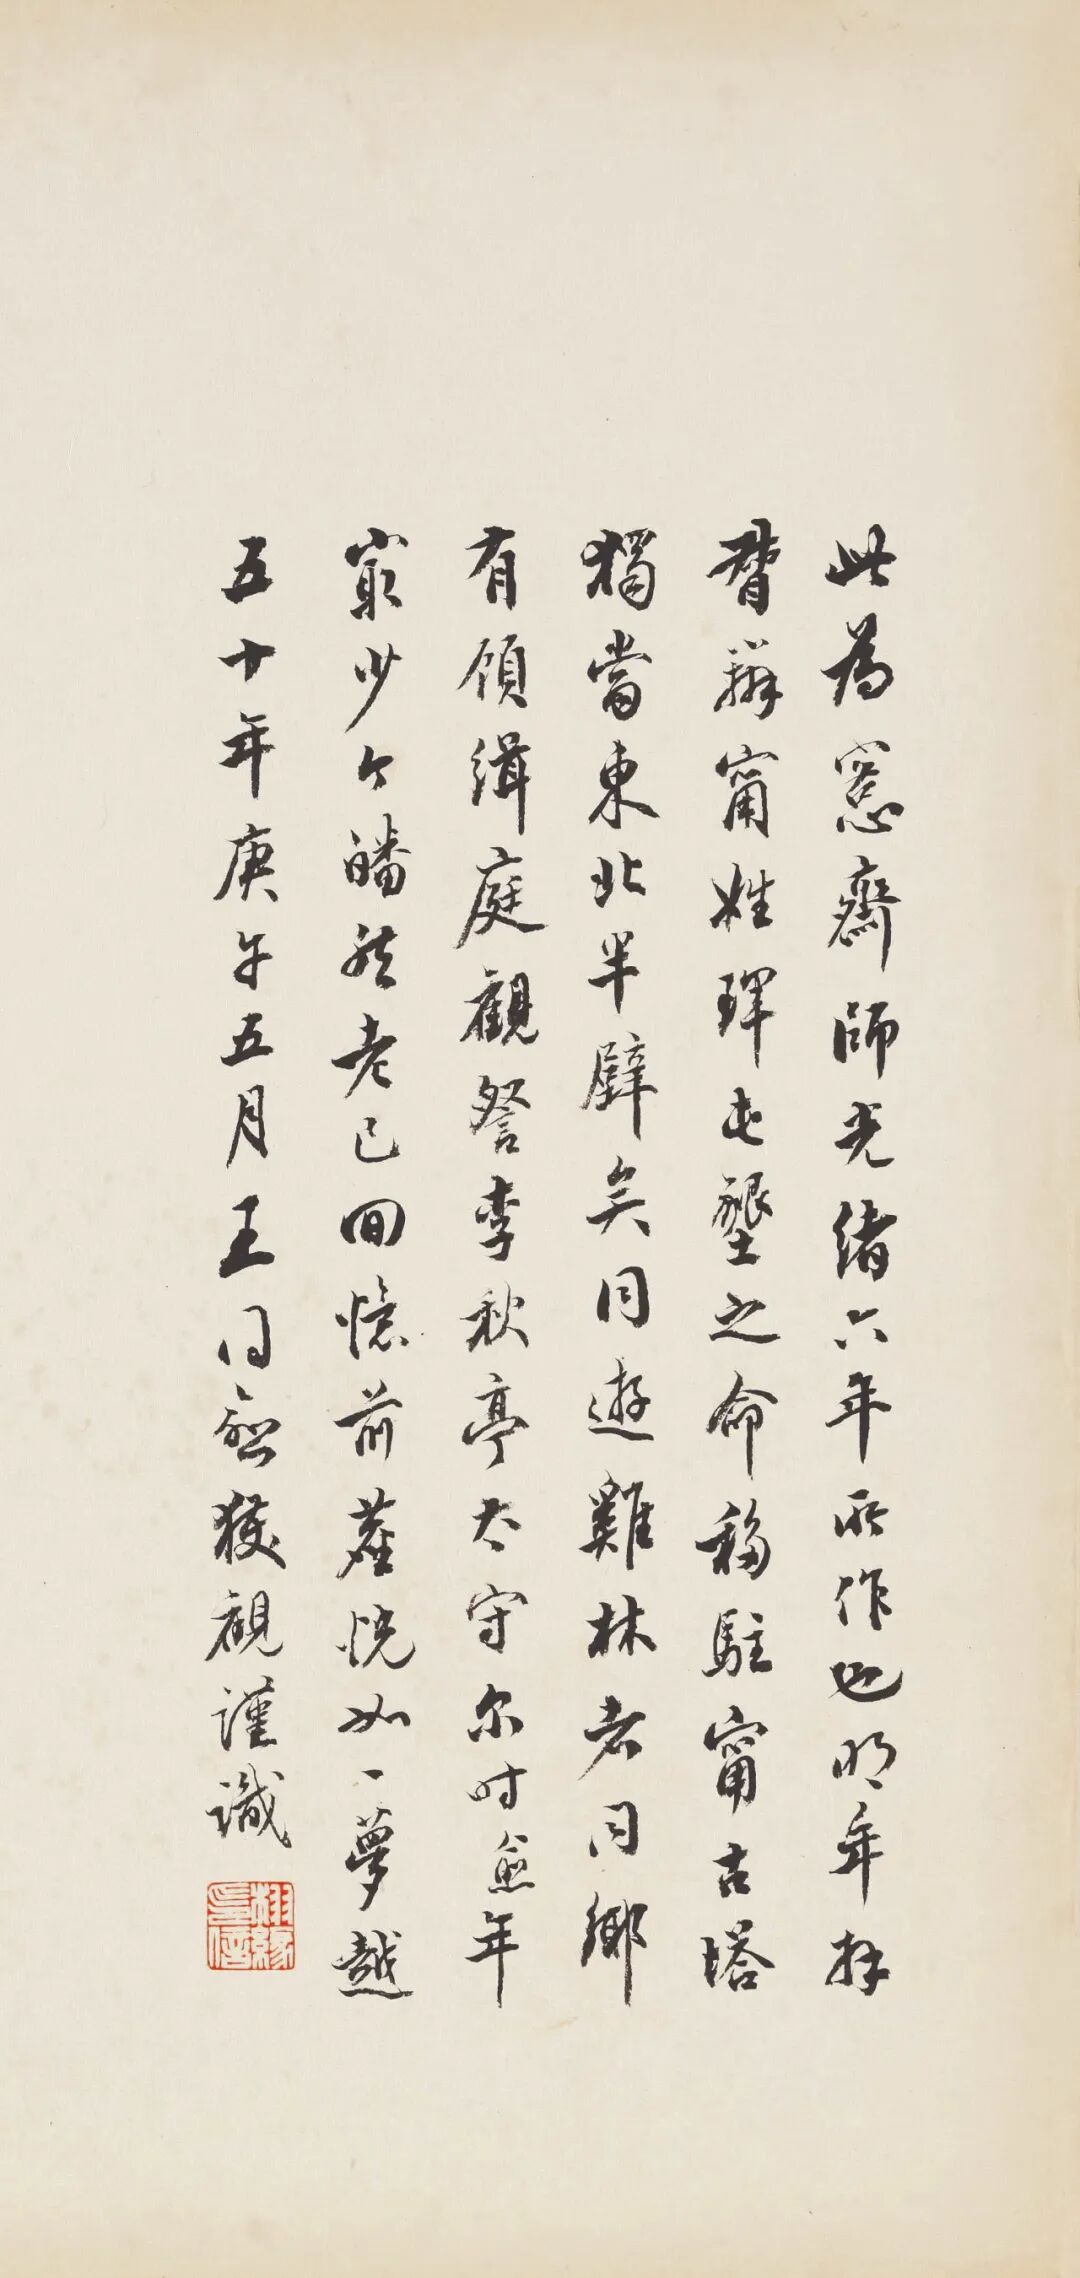 此為窓齋師光緒六年所作也明年拜
督辦甯姓琿屯墾之命移駐甯古塔
獨當東北半壁矣同遊雞林者同鄉
有顧緝庭觀詧李秋亭太守尔時愈年
冣少今皤然老已回憶前塵恍如一夢越
五十年庚午五月王同愈獲觀謹識
栩緣